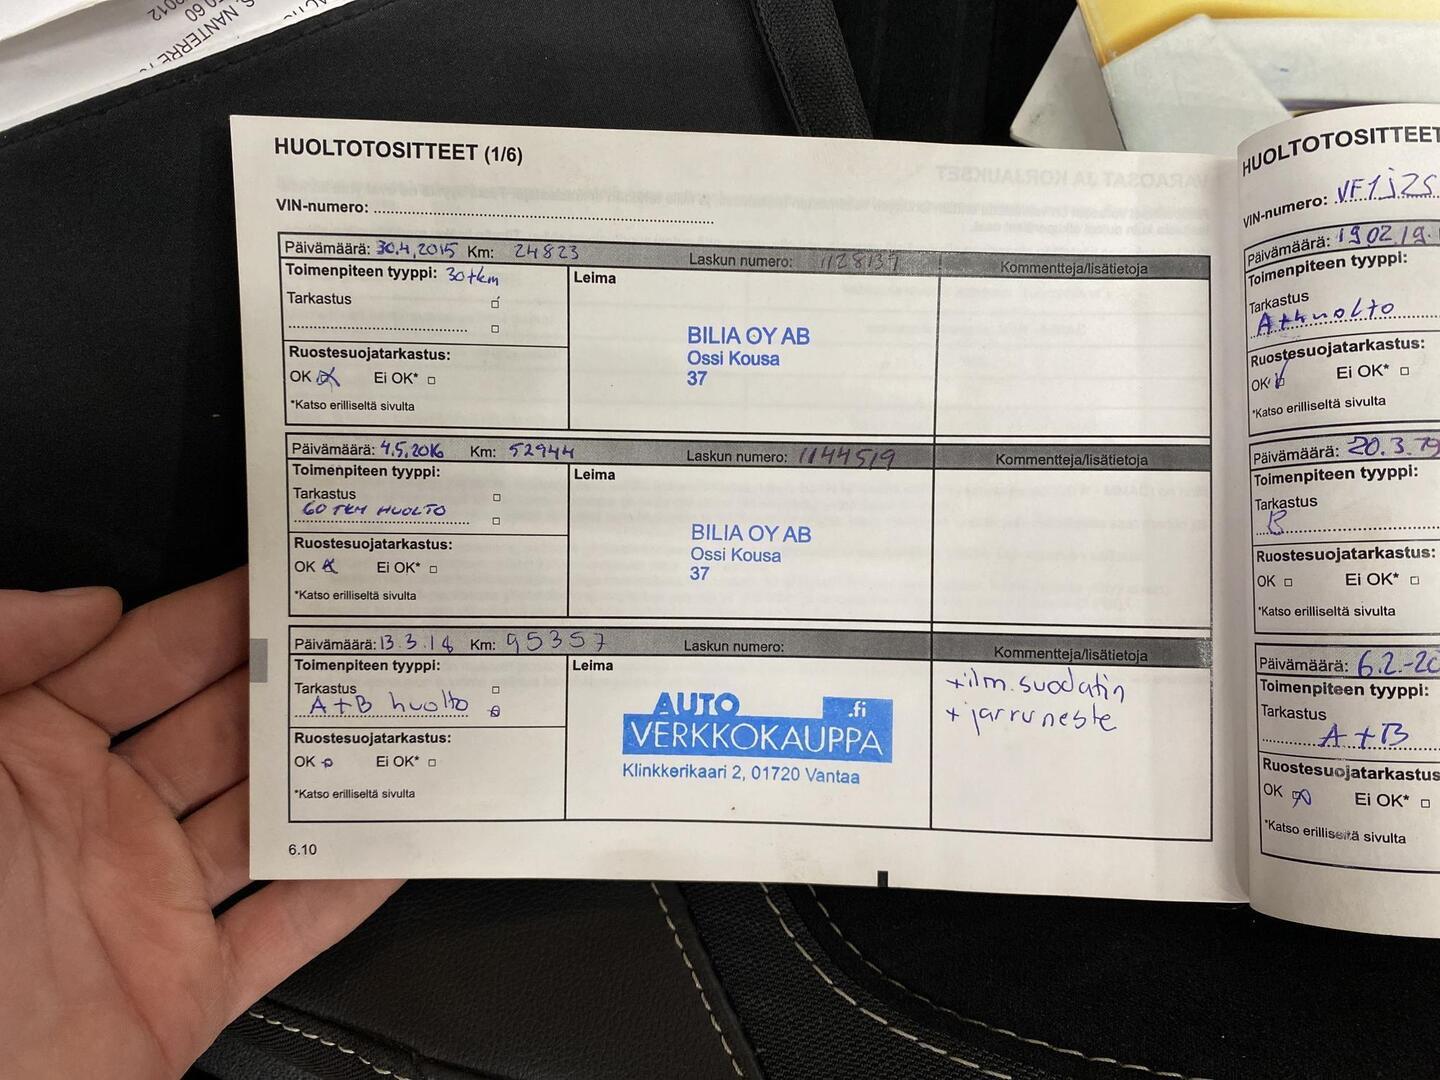 NANTERRE
2012
HUOLTOTOSITTEET (1/6)
VIN-numero:
Päivämäärä: 30.4.2015 Km: 24823 Laskun numero: 1128137 Kommentteja/lisätietoja
Toimenpiteen tyyppi: 30tkm
Leima
Tarkastus
BILIA OY AB
Ossi Kousa
37
Ruostesuojatarkastus:
OK Ei OK*
*Katso erilliseltä sivulta
Päivämäärä: 4.5.2016 Km: 52944 Laskun numero: 1144519 Kommentteja/lisätietoja
Toimenpiteen tyyppi:
Leima
Tarkastus
60 TKM HUOLTO
BILIA OY AB
Ossi Kousa
37
Ruostesuojatarkastus:
OK Ei OK*
*Katso erilliseltä sivulta
Päivämäärä: 13.3.18 Km: 95357 Laskun numero: Kommentteja/lisätietoja
Toimenpiteen tyyppi:
Leima
Tarkastus
A+B huolto
AUTO .fi
VERKKOKAUPPA
Klinkkerikaari 2, 01720 Vantaa
+ilm.suodatin
+jarruneste
Ruostesuojatarkastus:
OK Ei OK*
*Katso erilliseltä sivulta
6.10
HUOLTOTOSITTEET
VIN-numero: VF1JZS
Päivämäärä: 19.02.19
Toimenpiteen tyyppi:
Tarkastus
A+huolto
Ruostesuojatarkastus:
OK Ei OK*
*Katso erilliseltä sivulta
Päivämäärä: 20.3.
Toimenpiteen tyyppi:
Tarkastus
B
Ruostesuojatarkastus:
OK Ei OK*
*Katso erilliseltä sivulta
Päivämäärä: 6.2.-20
Toimenpiteen tyyppi:
Tarkastus
A+B
Ruostesuojatarkastus
OK Ei OK*
*Katso erilliseltä sivulta